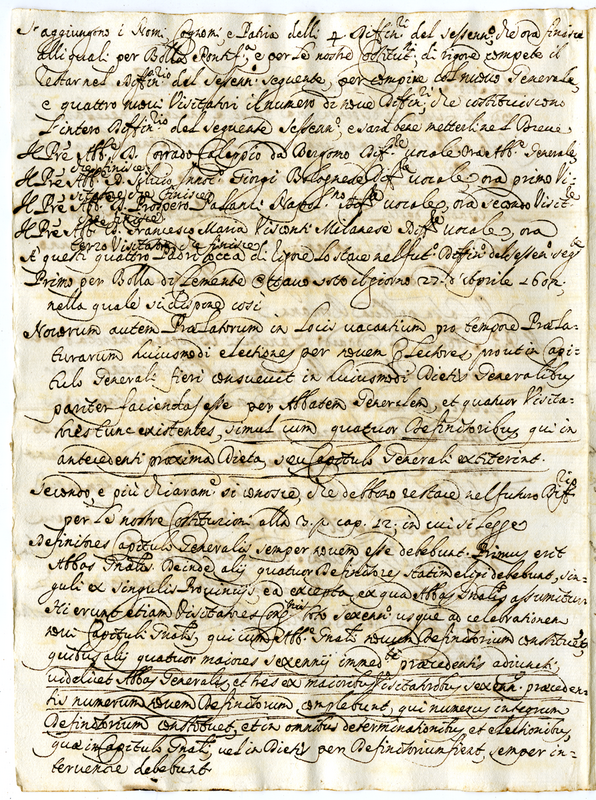 S'aggiungono i Nomi, Cognomi, e Patria delli 4 Diffin.ri del sessenn.o che ora finisce
alli quali per Bolla Pontif.a e per le nostre Costituz.ni di rigore compete il
restar nel Diffin.rio del sessenn.o seguente, per compire col nuovo Generale,
e quattro nuovi Visitatori il numero di nove Diffin.ri che costituiscono
l'intero Diffin.rio del seguente sessenn.o, e sarà bene metterli nel Breve
Il P.re Abb.e D. Corrado Caleppio da Bergomo Diff.re vocale ora Abb.e Generale,
che finisce
Il P.re Abb.e D. Innoc. Giorgi Bolognese Diff.re vocale, ora primo Vi-
sitatore che finisce
Il P.re Abb.e D. Prospero Napol.no Diff.re vocale, ora secondo Visit.e
che finisce
Il P.re Abb.e D. Francesco Maria Visconti Milanese Diff.re vocale, ora
terzo Visitatore che finisce
A questi quattro Padri tocca di rigore lo stare nel fut.o Diffin.o del sessen.o seg.te
Primo per Bolla di Clemente Ottavo sotto il giorno 27 d'Aprile
nella quale si dispone così
Novorum autem Prælatorum in Locis vacantium pro tempore Præla-
turarum huiusmodi electiones per novem Electores, prout in Capi-
tulo Generali fieri consuevit in huiusmodi Dietis Generalibus
pariter faciendas esse per Abbatem Generalem, et quatuor Visita-
tores tunc existentes, simul cum quatuor Definitoribus, qui in
antecedenti proxima Dieta, seu Capitulo Generali extiterint.
Secondo, e più chiaram.e si conosce, che debbono restare nel futuro Diff.rio
per le nostre Costituzioni alla 3. p. cap. 12, in cui si legge
Definitores Capituli Generalis semper novem esse debebunt. Primus erit
Abbas Gnalis. Deinde alij quatuor Definitores statim eligi debebunt, sin-
guli ex singulis Provincijs, ea excepta, ex qua Abbas Gnalis assumitur.
Hi erunt etiam Visitatores toto sexenn.o usque ad celebrationem
novi Capituli Gnalis, qui cum Abb.e Gnali novum Definitorium constituent,
quibus alij quatuor maiores sexennij immed.te præcedentis adiuncti,
videlicet Abbas Generalis, et tres ex maioribus Visitatoribus sexenn. præceden-
tis numerum novem Definitorum complebunt, qui numerus integrum
Definitorium constituet, et in omnibus determinationibus, et electionibus,
quæ in Capitulo Gnali, vel in Dietis per Definitorium fient, semper in-
tervenire debebunt